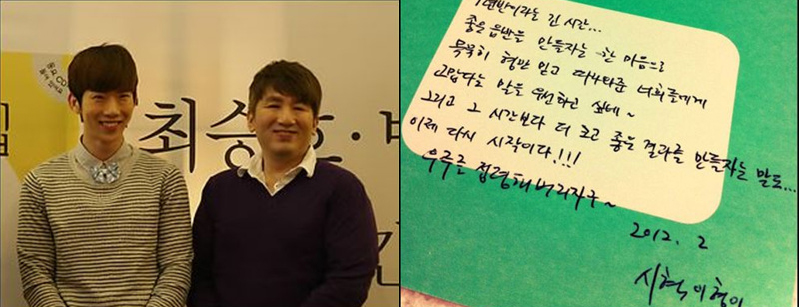 최승
1년반이라는 긴 시간...
좋은 음반을 만들자는 한 마음으로
묵묵히 형만 믿고 따라와준 너희들에게
고맙다는 말을 우선하고 싶네~
그리고 그 시간보다 더 크고 좋은 결과를 만들자는 말도...
이제 다시 시작이다!!!
우주를 점령해버리자구~
2012. 2
시혁이형이